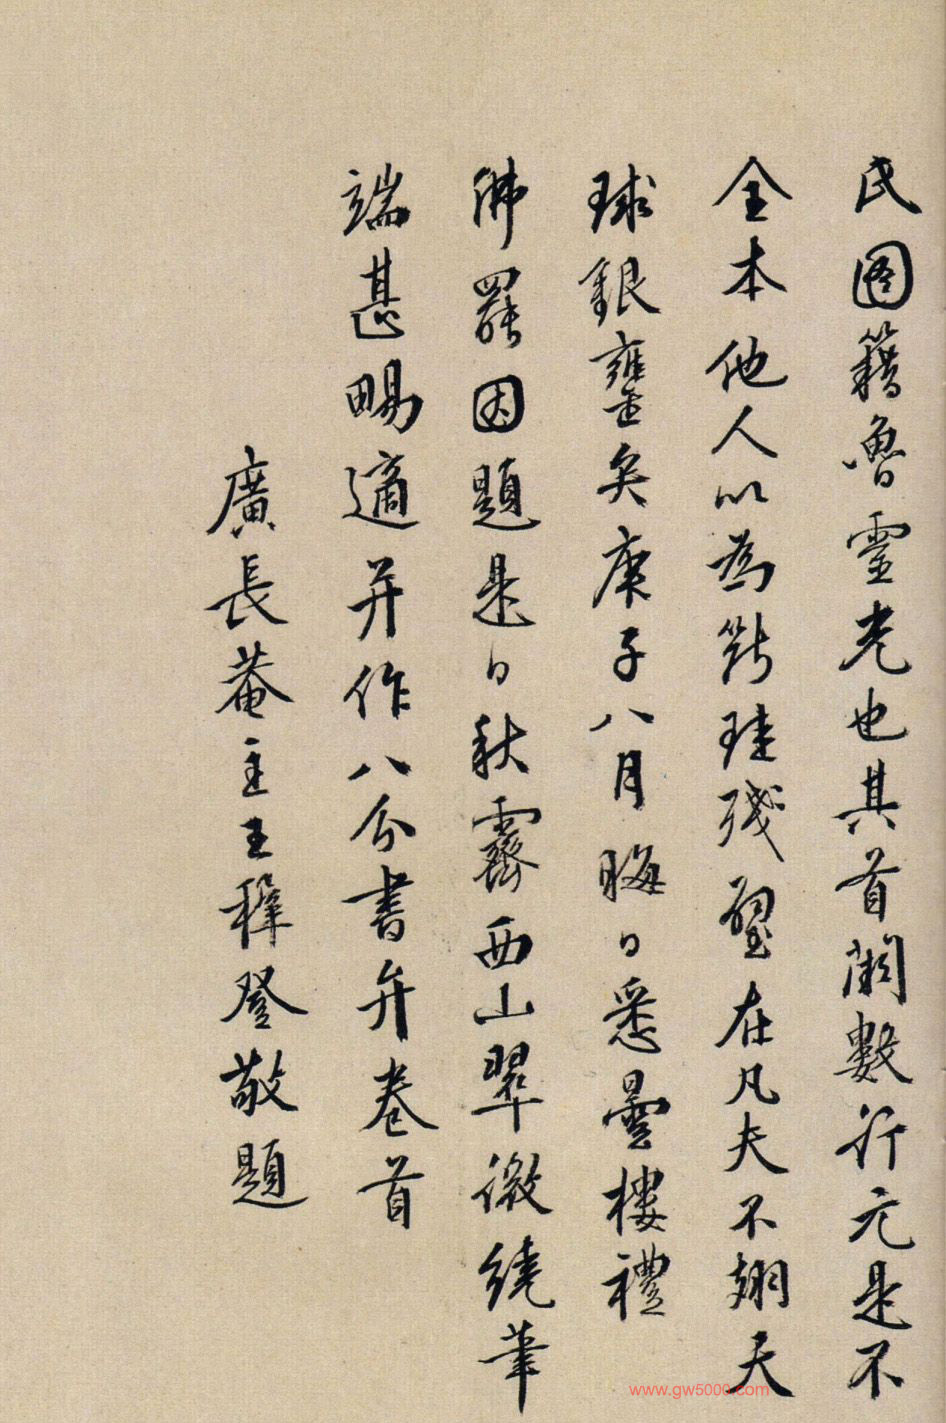 氏图籍魯靈光也其首闕數行元是不
全本他人以為斷珪殘璧在凡夫不翅天
球銀甕矣庚子八月晦日悉曇樓禮
佛罷因題是日秋霽西山翠微繞筆
端甚暢適并作八分書弁卷首
廣長菴主王穉登敬題
www.gw5000.com